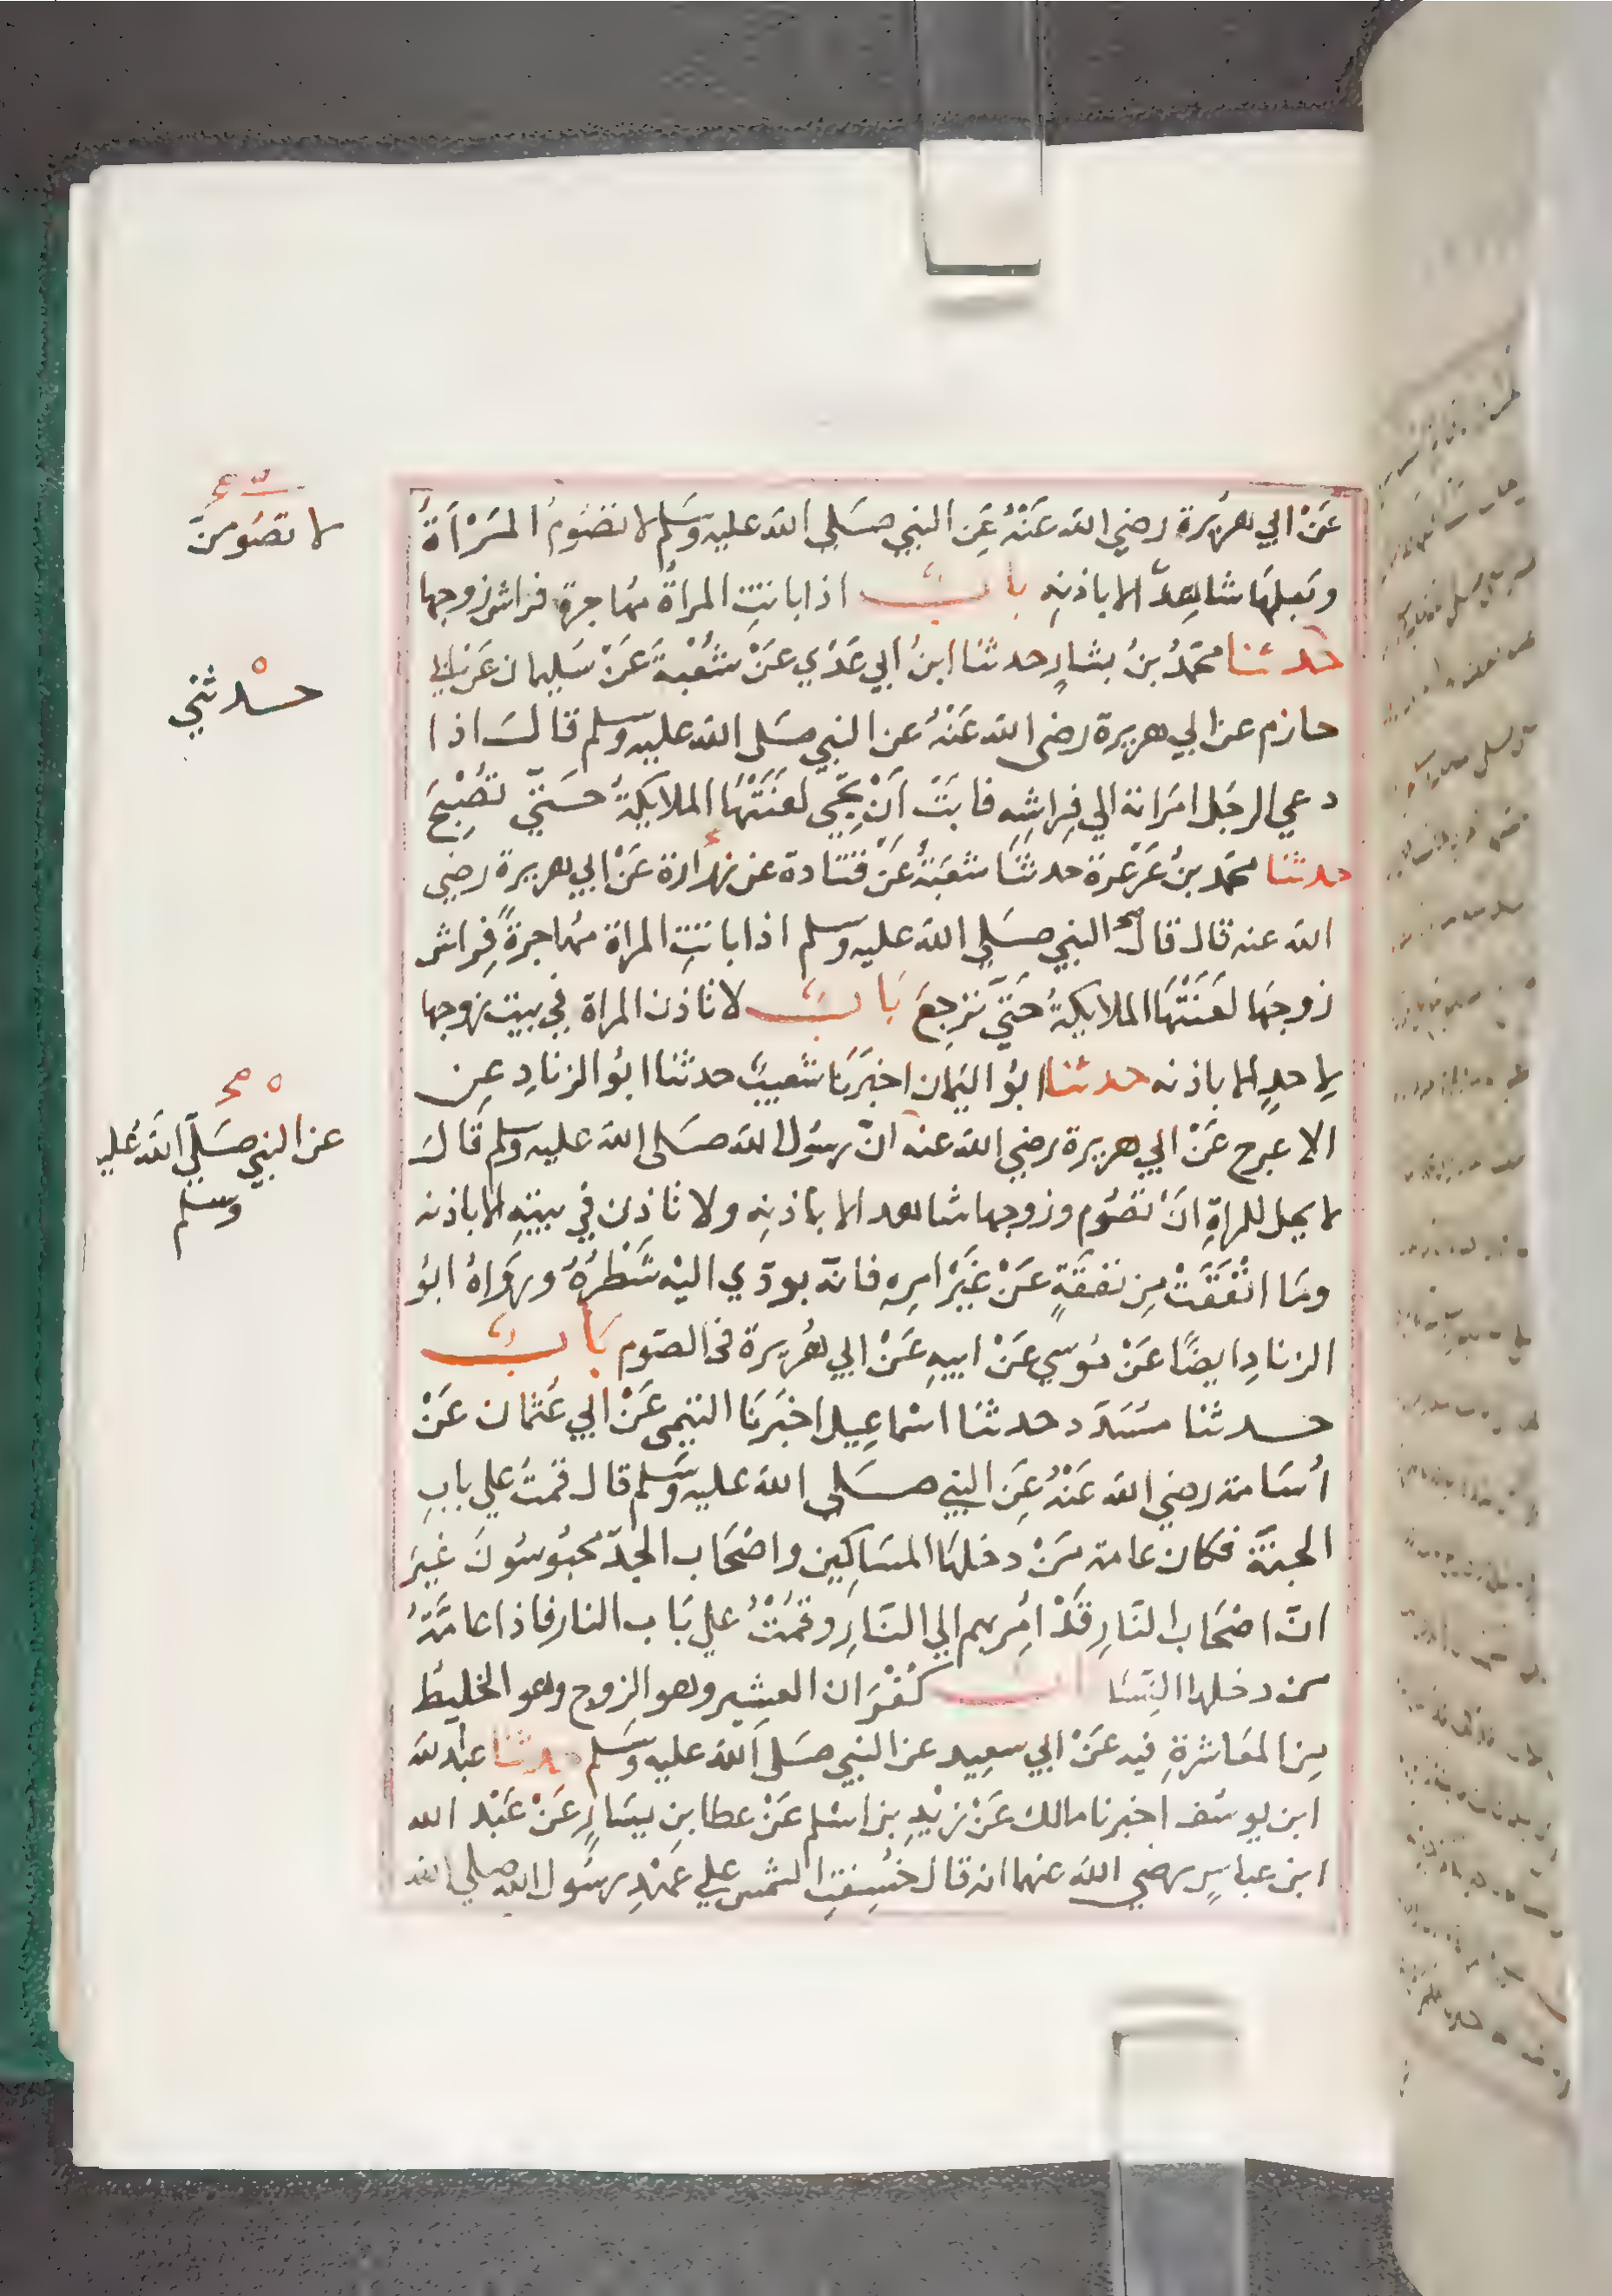 عَنْ ابي هريرة رضي الله عَنْهُ عَنِ النبي صَلى الله عليه وسَلم لا تصُومُ المَرْأةُ
وبَعلهَا شاهِدٌ الا باذنِهِ بابٌ اذا باتتِ المراةُ مهَاجرة فراش زوجِها
حدثنا محمدُ بنُ بشارٍ حدثنا ابنُ ابي عَدي عَنْ شعْبة عَنْ سَليمان عَن ابي
حازم عن ابي هريرة رضى الله عَنْهُ عن النبي صَلى الله عليه وسلم قالَ اذا
دعي الرجل امرَاته الي فِراشِه فابَتْ اَنْ تجي لعَنَتْهَا الملايكةُ حَتيّ تصْبِحَ
حدثنا محمد بنُ عَرْعَرة حدثنا شعبَةُ عَنْ قتادة عن زرارة عَنْ ابي هريرة رضي
الله عنه قال قال النبي صَلى الله عليه وسلم اذا باتتِ المراة مهاجرةً فِراش
زوجهَا لعَنَتْهَا الملايكةُ حَتيّ تَرجعَ بَابٌ لا تاذن المراة في بيت زوجها
لِاحدٍ الا باذنه حدثنا ابوُ اليَمان اخبَرنَا شعَيبٌ حدثنا ابوُ الزنادِ عن
الاعرج عَنْ ابي هريرة رضي الله عنه انّ رسُول الله صَلى الله عليه وسلم قَالَ
لا يحل للمراةِ انْ تصُوم وزوجها شاهد الا باذنِه ولا تاذن في بيتِهِ الا باذنه
ومَا انْفَقَتْ مِن نفقَةٍ عَنْ غَيْرَ امرِه فانّه يودّي اليْه شَطْرُهُ ورَوَاهُ ابوُ
الزنادِ ايضًا عَنْ مُوسي عَنْ ابيهِ عَنْ ابي هُريرة في الصَوم بَابٌ
حدثنا مسَدّد حدثنَا اسْماعيل اخبَرنَا التيمى عَنْ ابي عثمان عَنْ
أسَامة رضي الله عَنْهُ عَنِ النبي صَلى الله عليه وسَلم قال قمتُ علي بابِ
الجنَّة فكان عامة مَنْ دخلهَا المسَاكين واصْحَاب الجدّ محبُوسُونَ غيرَ
انّ اصْحَاب النَارِ قَدْ امُر بهم الي النَارِ وقمْتُ علي بَاب النار فاذا عامَّةُ
من دخلها النِسَا بابُ كُفْرَان العشِير وهو الزوج وهو الخليطُ
مِن المعَاشرةِ فيه عَنْ ابي سعِيد عن النبي صَلى الله عليه وسَلم حدثنا عبد الله
ابن يوسُف اخبرنا مالك عَنْ زيْدِ بن اسْلم عَنْ عطا بنِ يسَارٍ عَنْ عَبْد الله
ابن عباسٍ رضي الله عنهما انه قال خَسفتِ الشمس علي عَهْدِ رسُول الله صلي الله
لا تصُومنّ
حدثني
عن النبي صَلّي الله عليه
وسلم